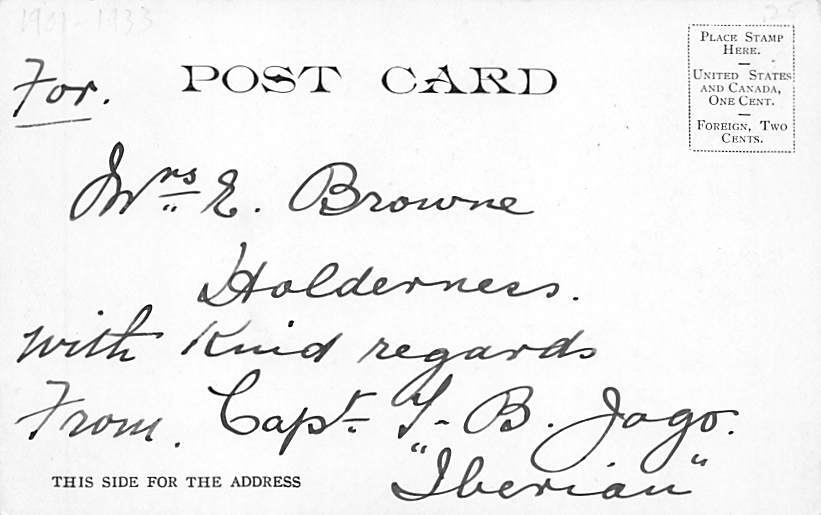 1901-1933
25
POST CARD
PLACE STAMP
HERE.
UNITED STATES
AND CANADA,
ONE CENT.
FOREIGN, TWO
CENTS.
For.
Mrs E. Browne
Holderness.
with Kind regards
From. Capt. T. B. Jago.
"Iberian"
THIS SIDE FOR THE ADDRESS